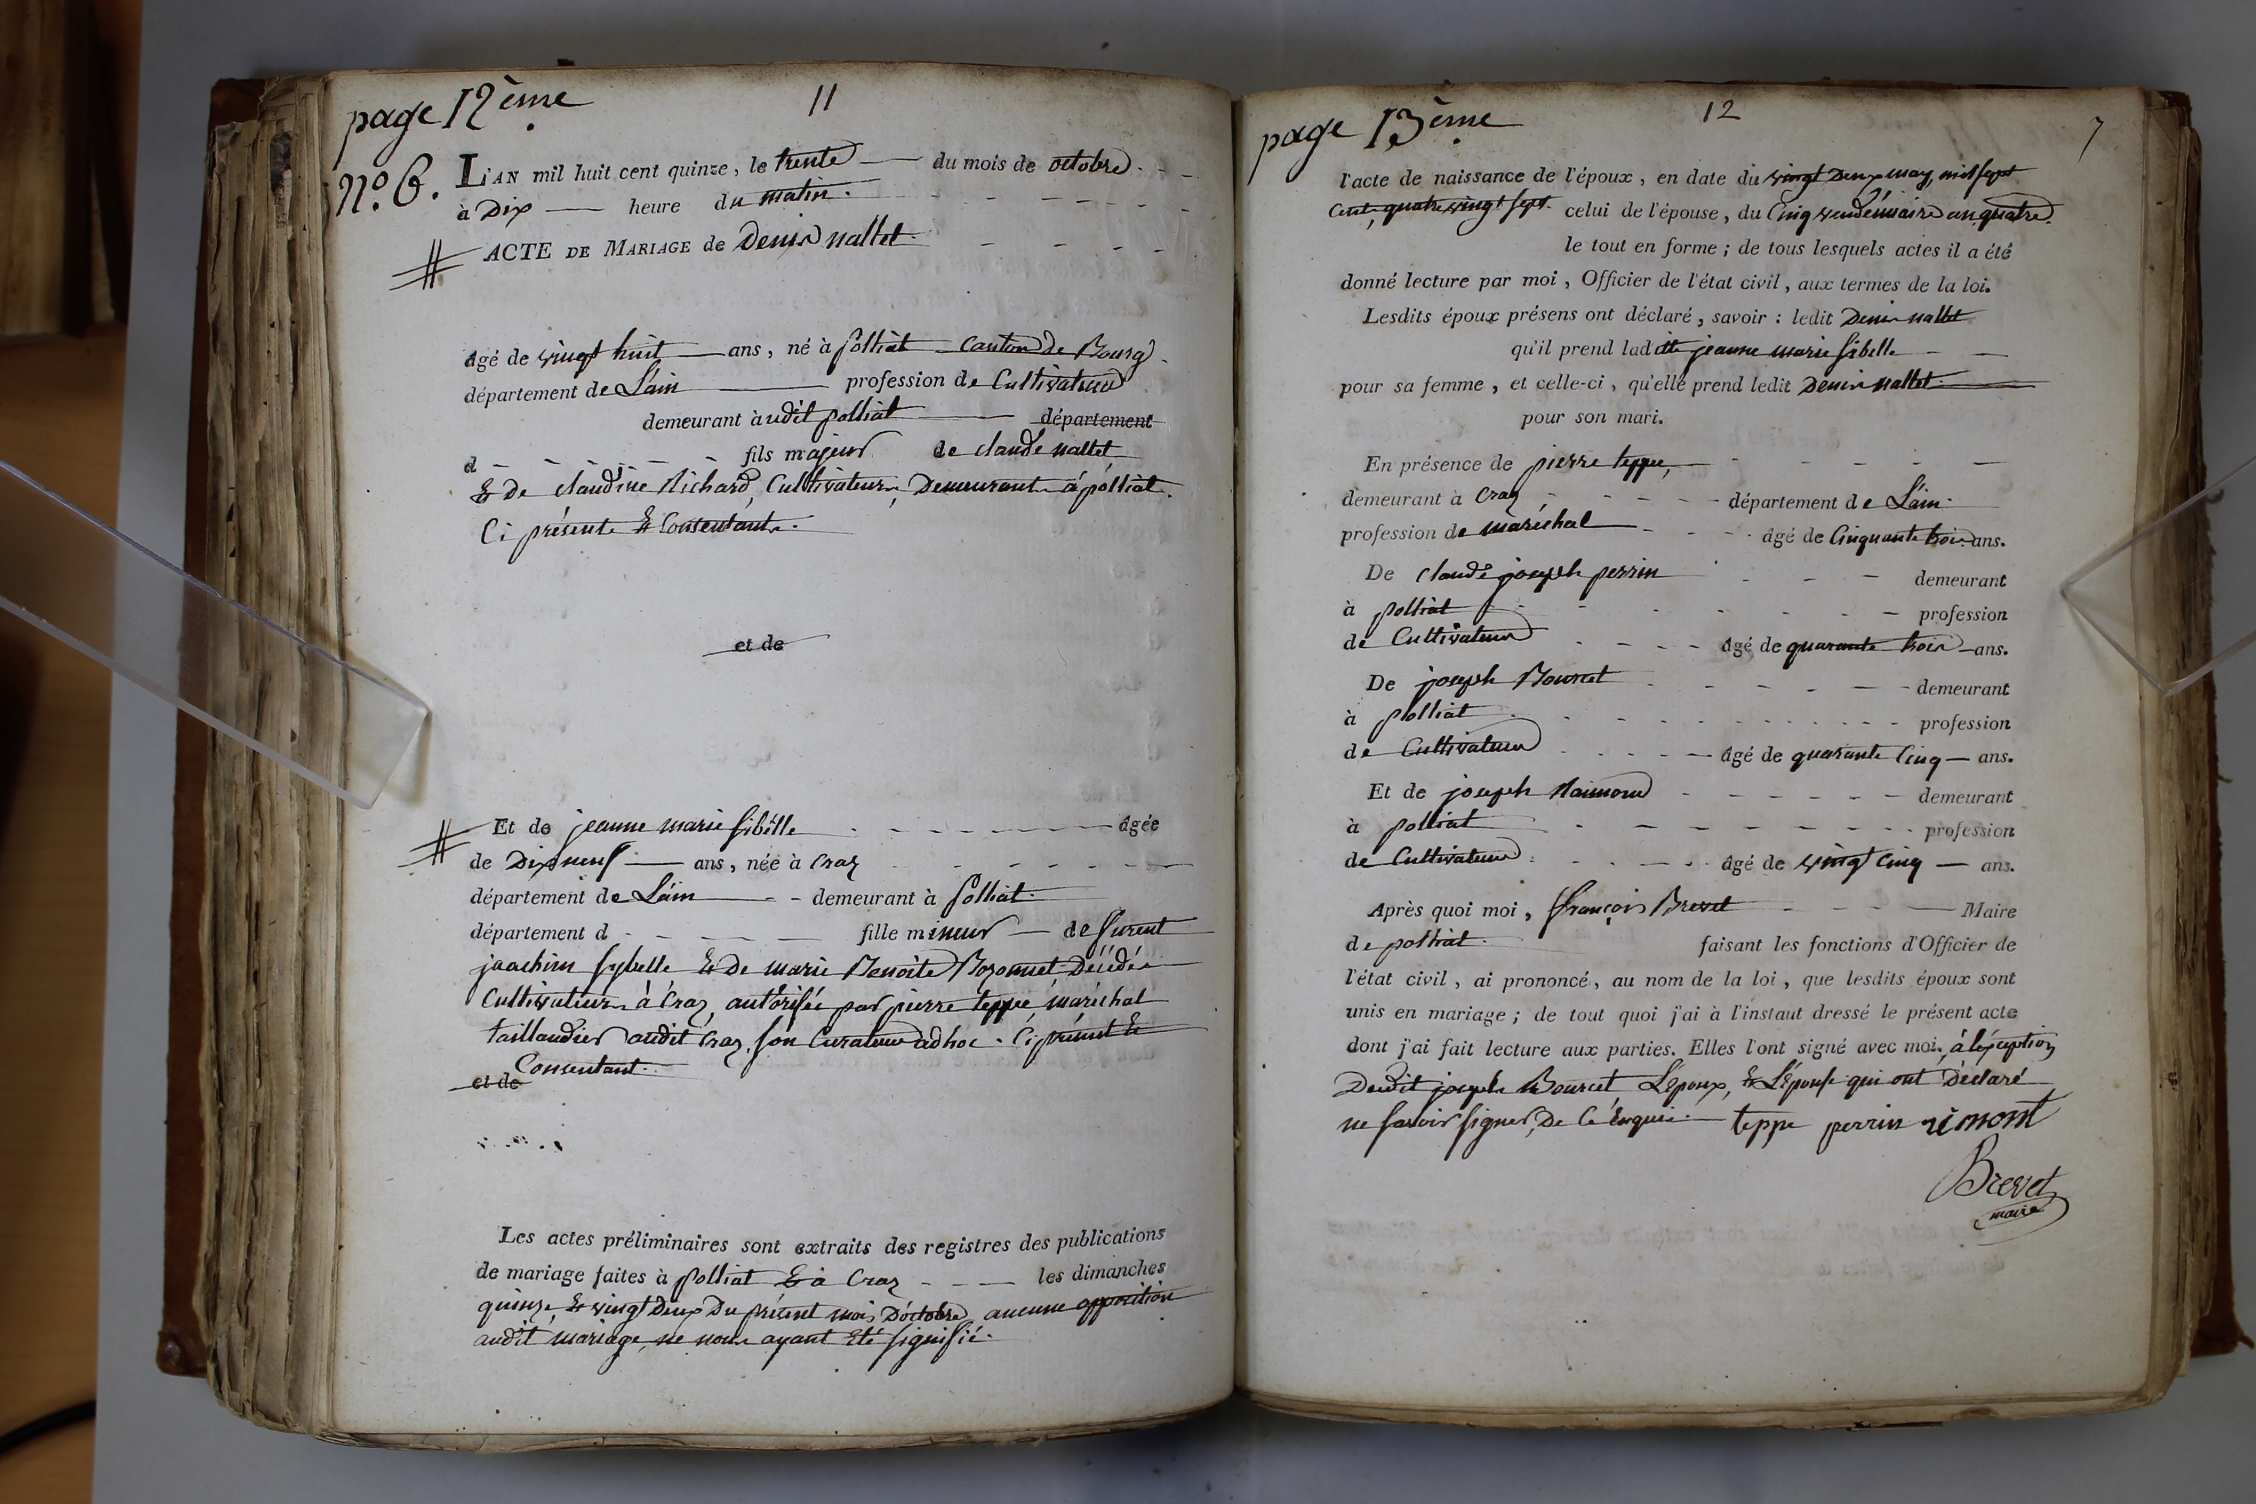 page 12ème
11
N.º 6. L'AN mil huit cent quinze, le trente du mois de octobre.
à Dix heure du matin.
ACTE DE MARIAGE de Denis nallet.
âgé de vingt huit ans, né à polliat canton de Bourg.
département de L'ain profession de Cultivateur
demeurant à udit polliat département
d fils majeur de claude nallet
& de claudine Richard, Cultivateurs, Demeurants à polliat.
Ci présents & Consentants.
et de
Et de jeanne marie sibelle âgée
de Dix neuf ans, née à craz
département de L'ain demeurant à polliat.
département d fille mineur de furent
joachim sybelle & De marie Benoite Bozonnet Décédés
Cultivateurs à Craz, autorisée par pierre teppe maréchal
taillandier audit Craz, son Curateur adhoc. Ci présent &
Consentant.
et de
Les actes préliminaires sont extraits des registres des publications
de mariage faites à polliat & à Craz les dimanches
quinze & vingt Deux Du présent mois D'octobre, aucune opposition
audit mariage, ne nous ayant été signifié.
page 13ème
12
7
l'acte de naissance de l'époux, en date du vingt Deux may, mil sept
Cent, quatre vingt sept. celui de l'épouse, du Cinq vendémiaire an quatre.
le tout en forme; de tous lesquels actes il a été
donné lecture par moi, Officier de l'état civil, aux termes de la loi.
Lesdits époux présens ont déclaré, savoir: ledit Denis nallet
qu'il prend ladite jeanne marie sibelle
pour sa femme, et celle-ci, qu'elle prend ledit Denis nallet.
pour son mari.
En présence de pierre teppe,
demeurant à Craz département de L'ain.
profession de maréchal âgé de Cinquante trois ans.
De claude joseph perrin demeurant
à polliat profession
de Cultivateur âgé de quarante trois ans.
De joseph Bourcet demeurant
à polliat profession
de Cultivateur âgé de quarante Cinq ans.
Et de joseph Raimond demeurant
à polliat profession
de Cultivateur âgé de vingt cinq ans.
Après quoi moi, françois Brevet Maire
de polliat. faisant les fonctions d'Officier de
l'état civil, ai prononcé, au nom de la loi, que lesdits époux sont
unis en mariage; de tout quoi j'ai à l'instant dressé le présent acte
dont j'ai fait lecture aux parties. Elles l'ont signé avec moi, à l'éxception
Dudit joseph Bourcet L'époux, & L'épouse qui ont Déclaré
ne savoir signer, De Ce Enquis. teppe perrin rémont
Brevet
maire